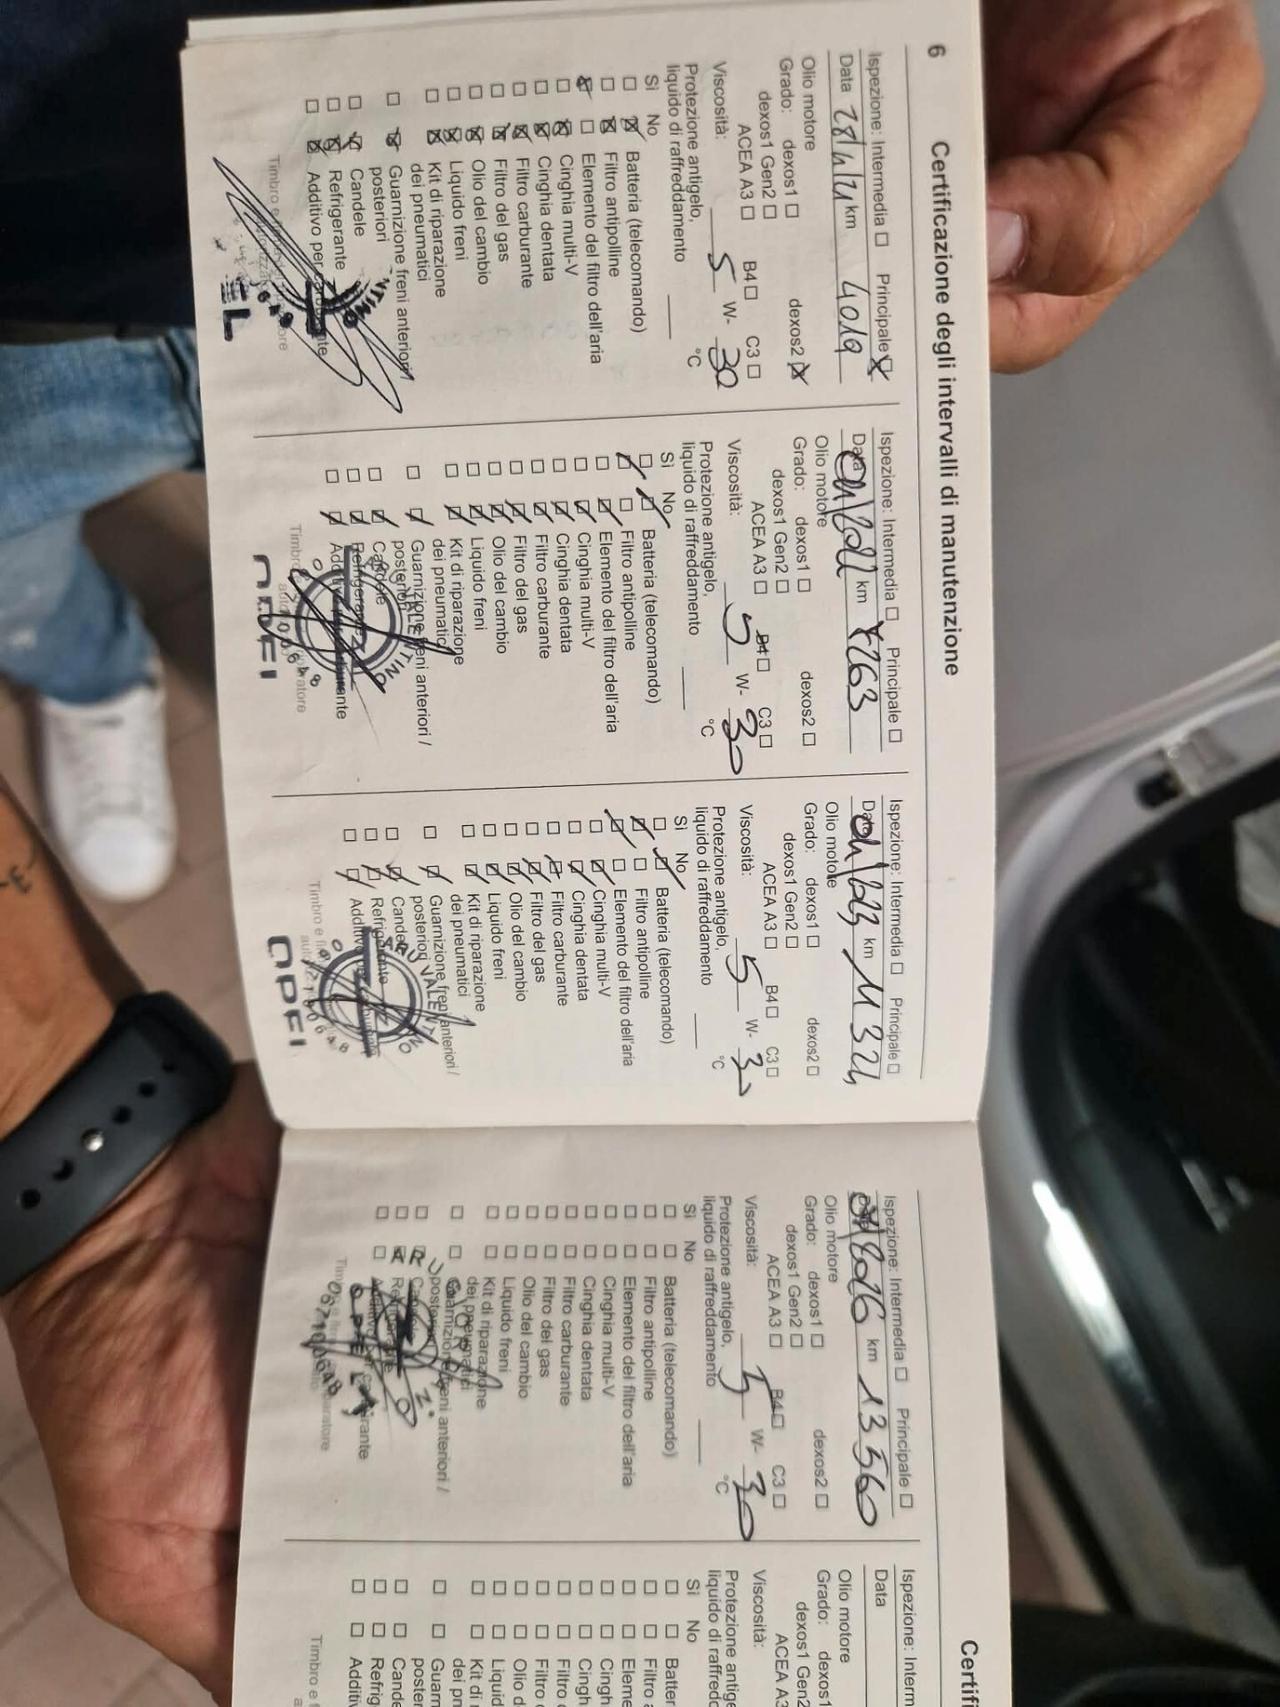 6
Certificazione degli intervalli di manutenzione
Ispezione: Intermedia ☐ Principale ☒
Data km 4019
Olio motore
Grado: dexos1 ☐ dexos2 ☒
dexos1 Gen2 ☐
ACEA A3 ☐ B4 ☐ C3 ☐
Viscosità: 5 W- 30
Protezione antigelo,
liquido di raffreddamento °C
Sì No
☐ ☒ Batteria (telecomando)
☐ ☒ Filtro antipolline
☒ ☐ Elemento del filtro dell'aria
☐ ☒ Cinghia multi-V
☐ ☒ Cinghia dentata
☐ ☒ Filtro carburante
☐ ☒ Filtro del gas
☐ ☒ Olio del cambio
☐ ☒ Liquido freni
☐ ☒ Kit di riparazione
dei pneumatici
☐ ☒ Guarnizione freni anteriori
posteriori
☐ ☒ Candele
☐ ☒ Refrigerante
☐ ☒ Additivo per carburante
Timbro e
Ispezione: Intermedia ☐ Principale ☐
Data km 7263
Olio motore
Grado: dexos1 ☐ dexos2 ☐
dexos1 Gen2 ☐
ACEA A3 ☐ B4 ☐ C3 ☐
Viscosità: 5 W- 30
Protezione antigelo,
liquido di raffreddamento °C
Sì No
☐ ☒ Batteria (telecomando)
☒ ☐ Filtro antipolline
☐ ☒ Elemento del filtro dell'aria
☐ ☒ Cinghia multi-V
☐ ☒ Cinghia dentata
☐ ☒ Filtro carburante
☐ ☒ Filtro del gas
☐ ☒ Olio del cambio
☐ ☒ Liquido freni
☐ ☒ Kit di riparazione
dei pneumatici
☐ ☒ Guarnizione freni anteriori /
posteriori
☐ ☒ Candele
☐ ☒ Refrigerante
☐ ☒ Additivo carburante
VALENTINO
Ispezione: Intermedia ☐ Principale ☐
Data km 11324
Olio motore
Grado: dexos1 ☐ dexos2 ☐
dexos1 Gen2 ☐
ACEA A3 ☐ B4 ☐ C3 ☐
Viscosità: 5 W- 30
Protezione antigelo,
liquido di raffreddamento °C
Sì No
☐ ☒ Batteria (telecomando)
☒ ☐ Filtro antipolline
☒ ☐ Elemento del filtro dell'aria
☐ ☒ Cinghia multi-V
☐ ☒ Cinghia dentata
☐ ☒ Filtro carburante
☐ ☒ Filtro del gas
☐ ☒ Olio del cambio
☐ ☒ Liquido freni
☐ ☒ Kit di riparazione
dei pneumatici
☐ ☒ Guarnizione freni anteriori /
posteriori
☐ ☒ Candele
☐ ☒ Refrigerante
☐ ☒ Additivo
Timbro e
Ispezione: Intermedia ☐ Principale ☐
km 13560
Olio motore
Grado: dexos1 ☐ dexos2 ☐
dexos1 Gen2 ☐
ACEA A3 ☐ B4 ☐ C3 ☐
Viscosità: 5 W- 30
Protezione antigelo,
liquido di raffreddamento °C
Sì No
☐ ☐ Batteria (telecomando)
☐ ☐ Filtro antipolline
☐ ☐ Elemento del filtro dell'aria
☐ ☐ Cinghia multi-V
☐ ☐ Cinghia dentata
☐ ☐ Filtro carburante
☐ ☐ Filtro del gas
☐ ☐ Olio del cambio
☐ ☐ Liquido freni
☐ ☐ Kit di riparazione
dei pneumatici
☐ ☐ Guarnizione freni anteriori /
posteriori
Certifi
Ispezione: Interm
Data
Olio motore
Grado: dexos1
dexos1 Gen2
ACEA A3
Viscosità:
Protezione antige
liquido di raffredd
Sì No
☐ ☐ Batter
☐ ☐ Filtro a
☐ ☐ Eleme
☐ ☐ Cingh
☐ ☐ Cingh
☐ ☐ Filtro
☐ ☐ Filtro
☐ ☐ Olio d
☐ ☐ Liquid
☐ ☐ Kit di
dei pn
☐ ☐ Guarn
poster
☐ ☐ Cande
☐ ☐ Refrig
☐ ☐ Additi
Timbro e f